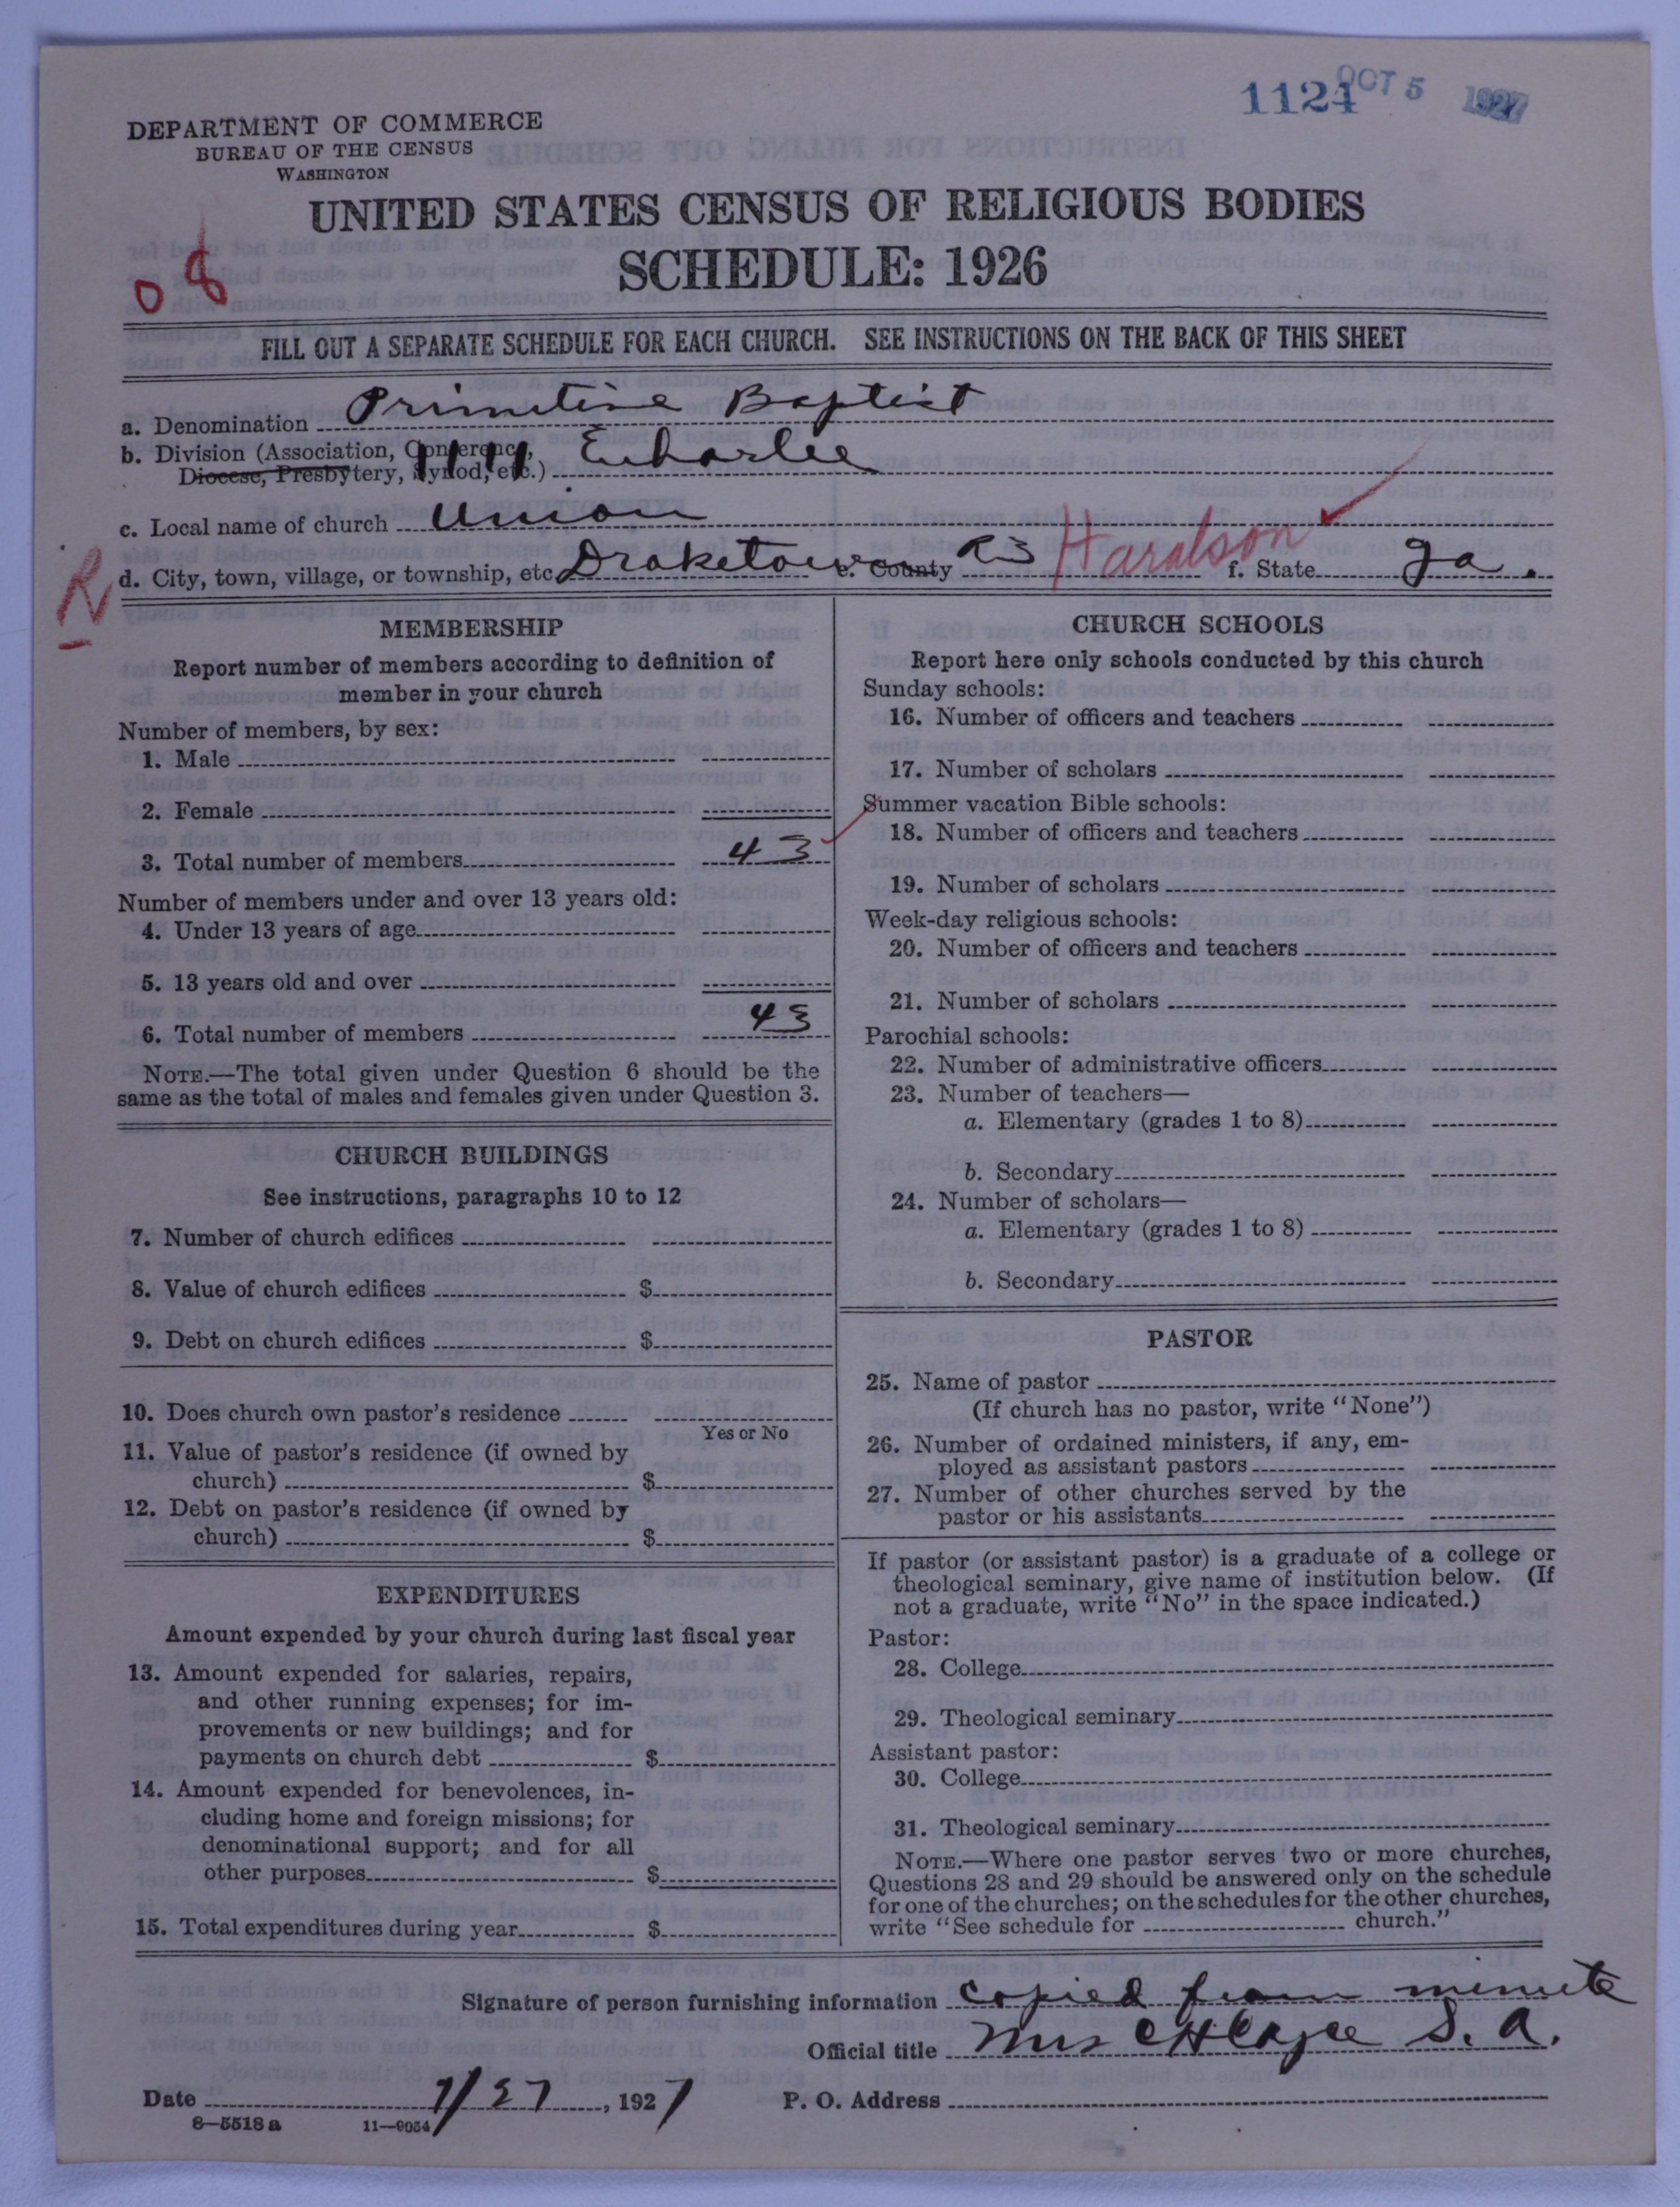 1124 OCT 5 1927
DEPARTMENT OF COMMERCE
BUREAU OF THE CENSUS
WASHINGTON
UNITED STATES CENSUS OF RELIGIOUS BODIES
SCHEDULE: 1926
08
FILL OUT A SEPARATE SCHEDULE FOR EACH CHURCH. SEE INSTRUCTIONS ON THE BACK OF THIS SHEET
a. Denomination Primitive Baptist
b. Division (Association, Conference, Diocese, Presbytery, Synod, etc.) 1111 Euharlee
c. Local name of church Union
R d. City, town, village, or township, etc. Draketown e. County R3 Haralson f. State Ga.
MEMBERSHIP
Report number of members according to definition of
member in your church
Number of members, by sex:
1. Male
2. Female
3. Total number of members 43
Number of members under and over 13 years old:
4. Under 13 years of age
5. 13 years old and over
6. Total number of members 43
NOTE.—The total given under Question 6 should be the
same as the total of males and females given under Question 3.
CHURCH BUILDINGS
See instructions, paragraphs 10 to 12
7. Number of church edifices
8. Value of church edifices $
9. Debt on church edifices $
10. Does church own pastor's residence
Yes or No
11. Value of pastor's residence (if owned by
church) $
12. Debt on pastor's residence (if owned by
church) $
EXPENDITURES
Amount expended by your church during last fiscal year
13. Amount expended for salaries, repairs,
and other running expenses; for im-
provements or new buildings; and for
payments on church debt $
14. Amount expended for benevolences, in-
cluding home and foreign missions; for
denominational support; and for all
other purposes $
15. Total expenditures during year $
CHURCH SCHOOLS
Report here only schools conducted by this church
Sunday schools:
16. Number of officers and teachers
17. Number of scholars
Summer vacation Bible schools:
18. Number of officers and teachers
19. Number of scholars
Week-day religious schools:
20. Number of officers and teachers
21. Number of scholars
Parochial schools:
22. Number of administrative officers
23. Number of teachers—
a. Elementary (grades 1 to 8)
b. Secondary
24. Number of scholars—
a. Elementary (grades 1 to 8)
b. Secondary
PASTOR
25. Name of pastor
(If church has no pastor, write "None")
26. Number of ordained ministers, if any, em-
ployed as assistant pastors
27. Number of other churches served by the
pastor or his assistants
If pastor (or assistant pastor) is a graduate of a college or
theological seminary, give name of institution below. (If
not a graduate, write "No" in the space indicated.)
Pastor:
28. College
29. Theological seminary
Assistant pastor:
30. College
31. Theological seminary
NOTE.—Where one pastor serves two or more churches,
Questions 28 and 29 should be answered only on the schedule
for one of the churches; on the schedules for the other churches,
write "See schedule for church."
Signature of person furnishing information copied from minute
Official title Mrs C H S. A.
Date 7/27, 1927 P. O. Address
8—5518 a 11—9054